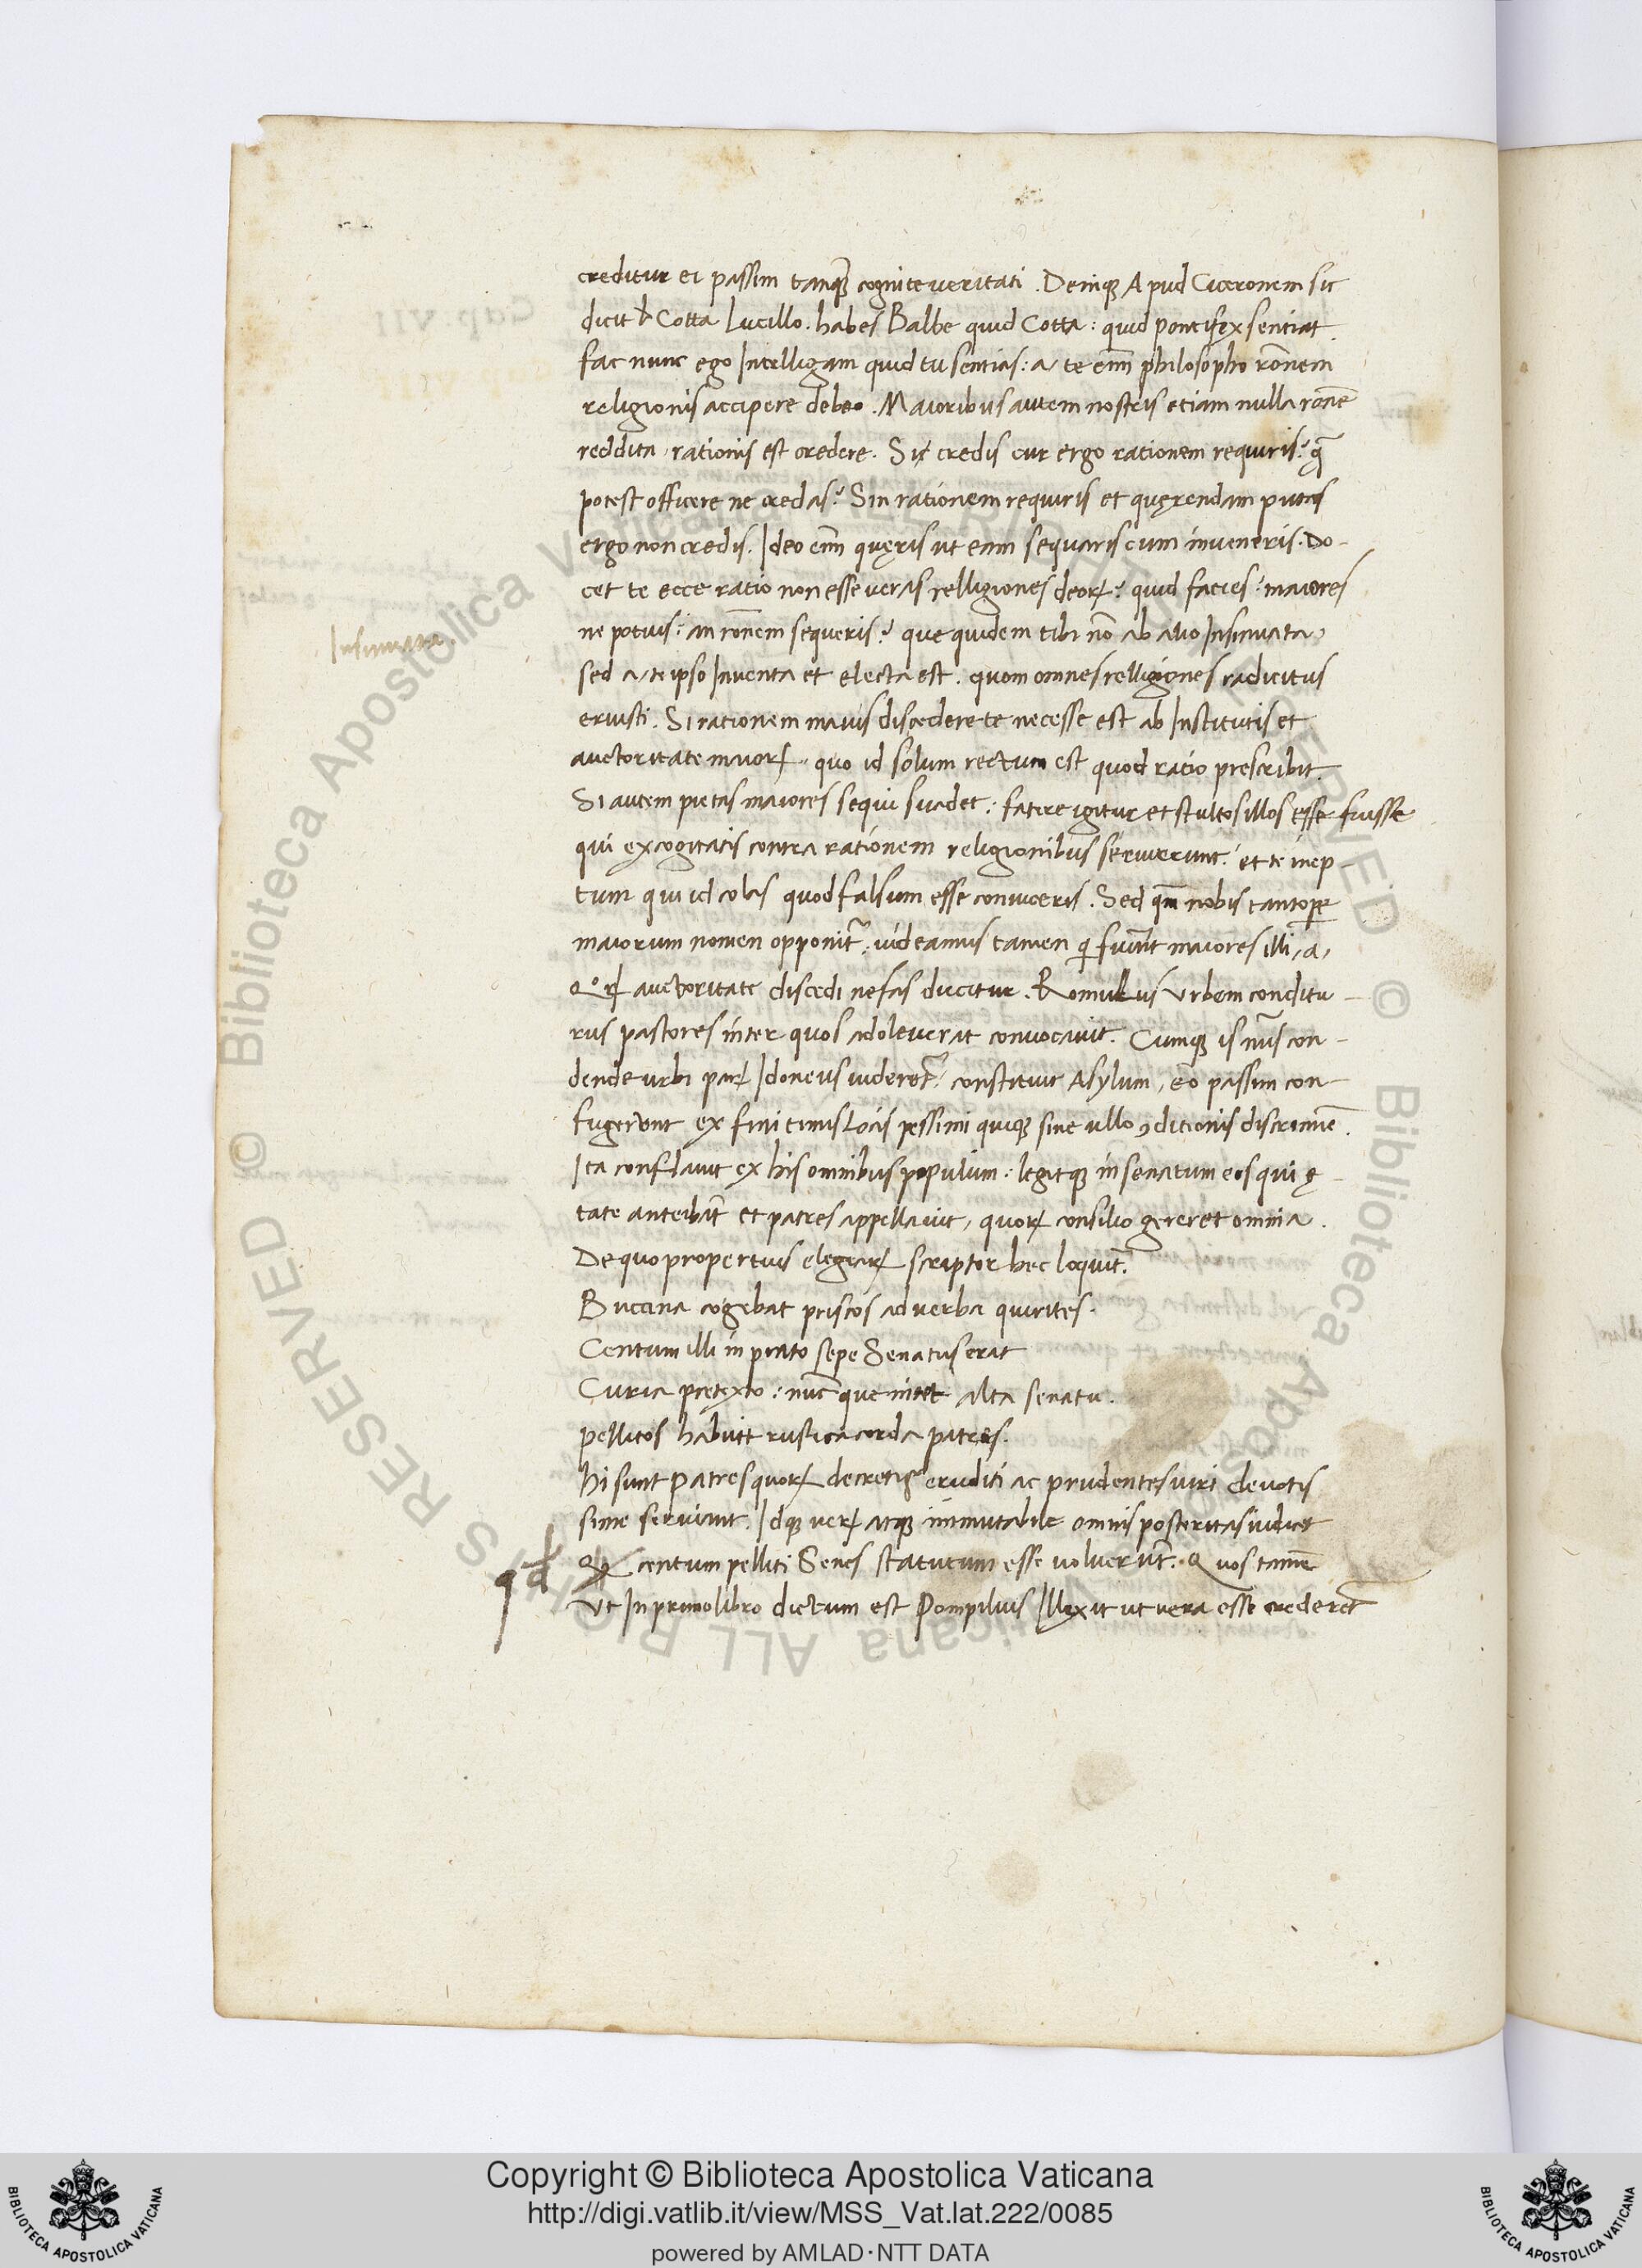 creditur ei passim tanq̃ cognite veritati. Deniq; Apud Ciceronem sic
dicit Cotta Lucillo. habes Balbe quid Cotta: quid pontifex sentiat.
fac nunc ego Intelligam quid tu sentias: a te em̃ philosopho rõnem
religionis accipere debeo. Maioribus autem nostris etiam nulla rõne
reddita rationis est credere. Si credis cur ergo rationem requiris? q̃
potest officere ne credas? Sin rationem requiris et quęrendam putas
ergo non credis. Ideo em̃ quęris ut eam sequaris cum inveneris. Do-
cet te ecce ratio non esse veras relligiones deoꝝ? quid facies? maiores
ne potius? an rõnem sequeris? que quidem tibi nõ ab alio Insinuata
Insinuata.
sed a te ipso Inventa et electa est. quom omnes relligiones radicitus
eruisti. Si rationem mavis discedere te necesse est ab Institutis et
auctoritate maioꝝ. quo id solum rectum est quod ratio prescribit.
Si autem pietas maiores sequi suadet: fatere igitur et stultos illos esse fuisse
qui excogitatis contra rationem religionibus servierunt: et te inep-
tum qui id colas quod falsum esse conviceris. Sed qm̃ nobis tantope̱
maiorum nomen opponit̃: videamus tamen q fuerũt maiores illi, a,
Qoꝝ auctoritate discedi nefas ducitur. Romulus Urbem conditu-
rus pastores inter quos adoleverat convocavit. Cumq; is nũs con-
dende urbi paꝝ Idoneus videret̃: constituit Asylum, eo passim con-
fugerunt ex finitimis Locis pessimi quiq; sine ullo ꝯditionis discrimine.
Ita conflavit ex his omnibus populum: legitq; in senatum eos qui ę-
tate anteibãt et patres appellavit, quoꝝ consilio gereret omnia.
De quo propertius elegiaꝝ scriptor hec loquit̃.
Buccina cogebat priscos ad verba quirites.
Centum illi in prato sepe Senatus erat
Curia pretexto: nũc que nitet alta senatu.
pellitos habuit rustica corda patres.
Hi sunt Patres quoꝝ decretis eruditi ac prudentes viri devotis
sime serviunt. Idq; veꝝ atq; immutabile omnis posteritas iudicet
qd centum pelliti Senes statutum esse voluerũt. Quos tamẽ
Ut In primo libro dictum est Pompilius Illexit ut vera esse crederẽt
Copyright © Biblioteca Apostolica Vaticana
http://digi.vatlib.it/view/MSS_Vat.lat.222/0085
powered by AMLAD·NTT DATA
BIBLIOTECA APOSTOLICA VATICANA
BIBLIOTECA APOSTOLICA VATICANA